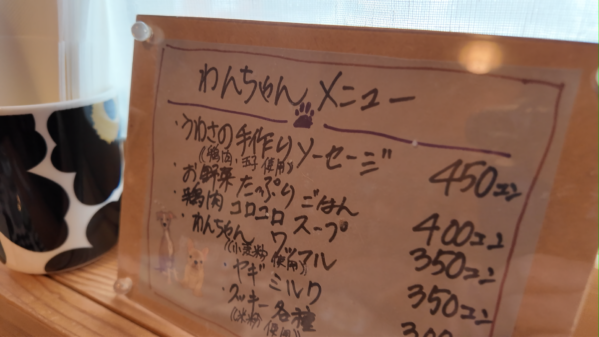 わんちゃん メニュー
・うわさの手作りソーセージ 450エン
(鶏肉・玉子使用)
・お野菜たっぷりごはん 400エン
・鶏肉コロコロスープ 350エン
・わんちゃんワッフル 350エン
(小麦粉使用)
・ヤギミルク
・クッキー各種
(米粉使用)